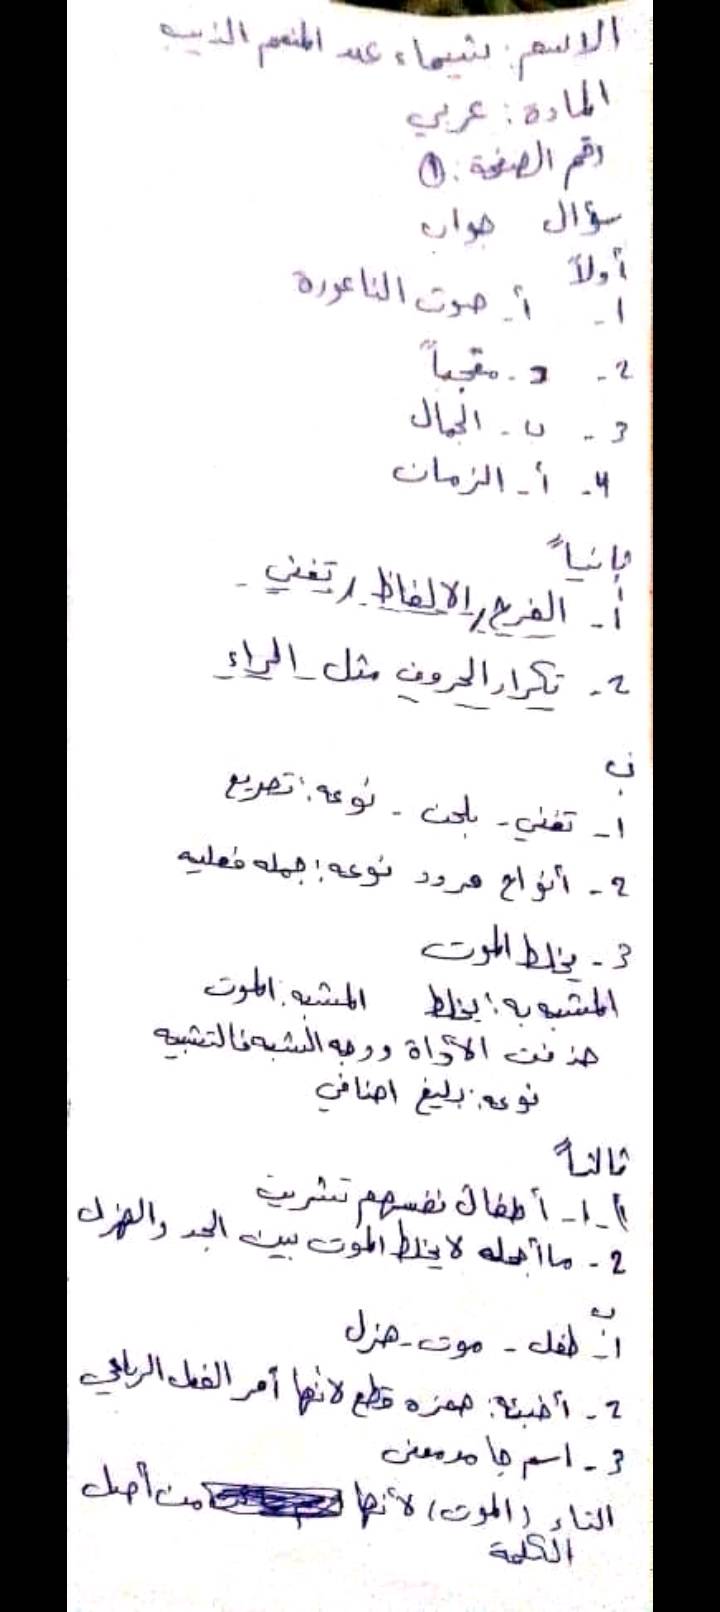 الاسم: شيماء عبد المنعم الذيب
المادة: عربي
رقم الصفحة: ①
سؤال جواب
أولاً
1- أ- صوت الناعورة
2- د- مقجباً
3- ب- الجمال
4- أ- الزمان
ثانياً
أ- الفرح / الالفاظ / تغني -
2- تكرار الحروف مثل الراء
ب
1- تغني - بلحن - نوعه: تصريع
2- أنواع نوعه: جمله فعليه
3- يخلط الموت
المشبه به: يخلط المشبه: الموت
حذفت الأداة ووجه الشبه فالتشبيه
نوعه: بليغ اضافي
ثالثاً
أ- 1- أطفال نفسهم تشرين
2- ما أجمله لا يخلط الموت بين الجد والهزل
ب
1- طفل - موت - هزل
2- همزه قطع لأنها أمر الفعل الرباعي
3- اسم جامد معنى
التاء (الموت) لأنها من أصل
الكلمة